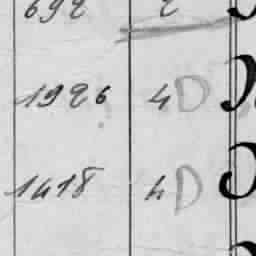 692 2
1926 4 D
1418 4 D